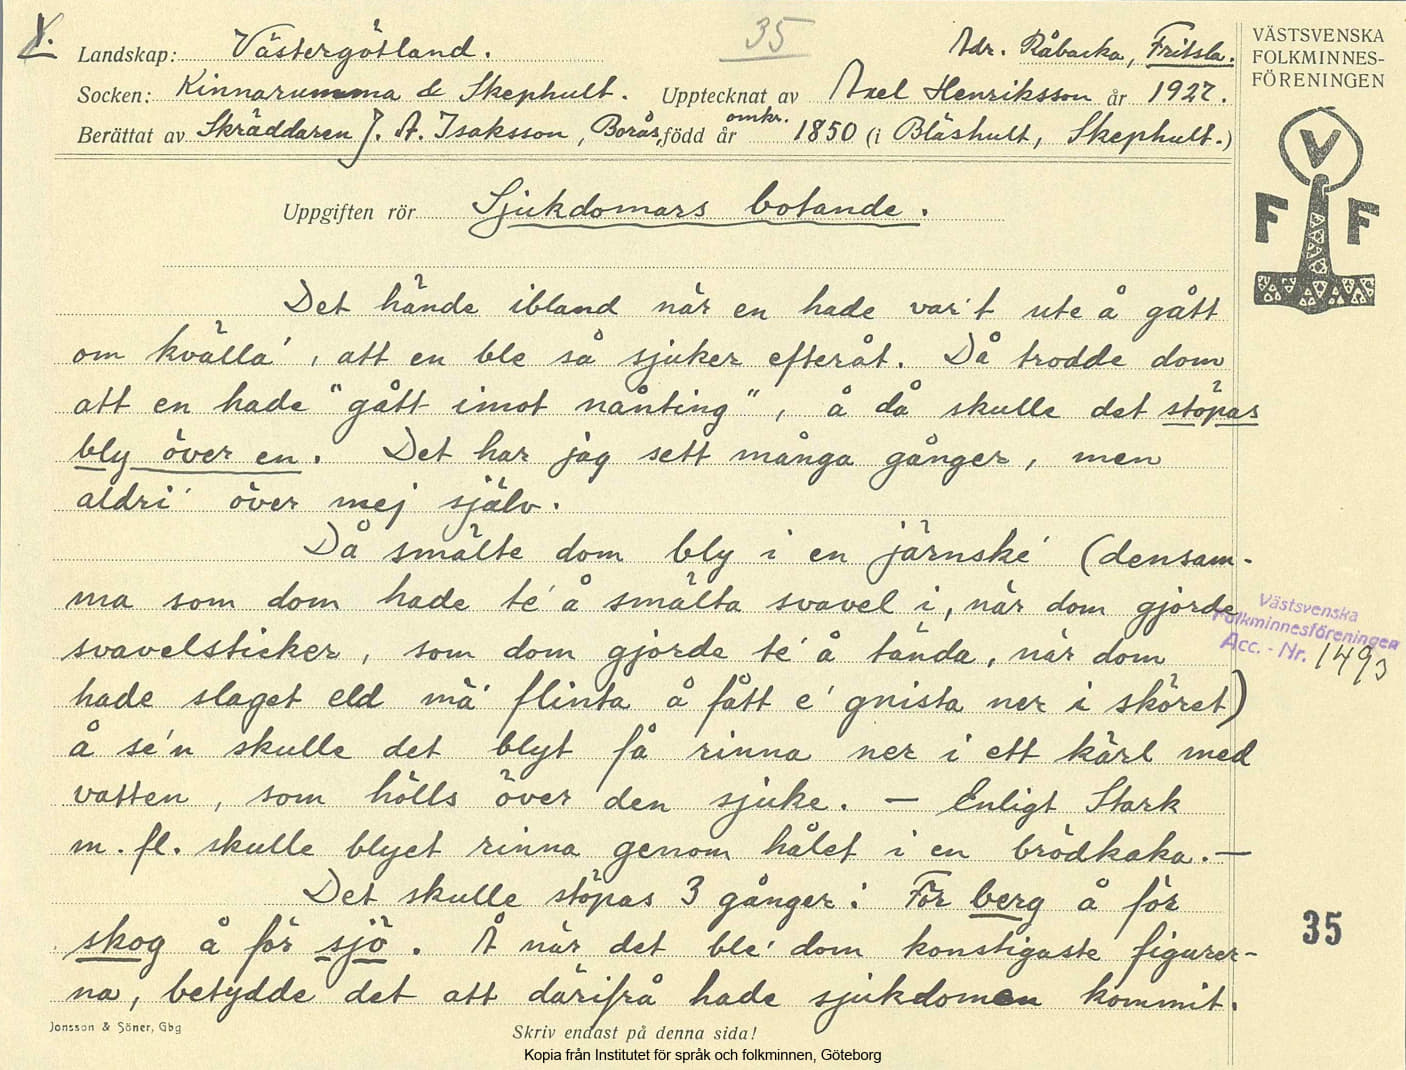 Y. Landskap: Västergötland. 35 Adr. Råbacka, Fritsla.
Socken: Kinnarumma & Skephult. Upptecknat av Axel Henriksson år 1927.
Berättat av Skräddaren J. A. Isaksson, Borås, född år omkr. 1850 (i Bläshult, Skephult.)
VÄSTSVENSKA
FOLKMINNES-
FÖRENINGEN
V
F F
Uppgiften rör Sjukdomars botande.
Det hände ibland när en hade var't ute å gått
om kvälla', att en ble så sjuker efteråt. Då trodde dom
att en hade "gått imot nånting", å då skulle det stöpas
bly över en. Det har jag sett många gånger, men
aldri' över mej själv.
Då smälte dom bly i en järnske' (densam-
ma som dom hade te' å smälta svavel i, när dom gjorde
svavelsticker, som dom gjorde te' å tända, när dom
hade slaget eld mä' flinta å fått e' gnista ner i sköret)
å se'n skulle det blyt få rinna ner i ett kärl med
vatten, som hölls över den sjuke. — Enligt Stark
m. fl. skulle blyet rinna genom hålet i en brödkaka. —
Det skulle stöpas 3 gånger: För berg å för
skog å för sjö. Å när det ble' dom konstigaste figurer-
na, betydde det att därifrå hade sjukdomen kommit.
Västsvenska
Folkminnesföreningen
Acc. - Nr. 1493
35
Jonsson & Söner, Gbg
Skriv endast på denna sida!
Kopia från Institutet för språk och folkminnen, Göteborg